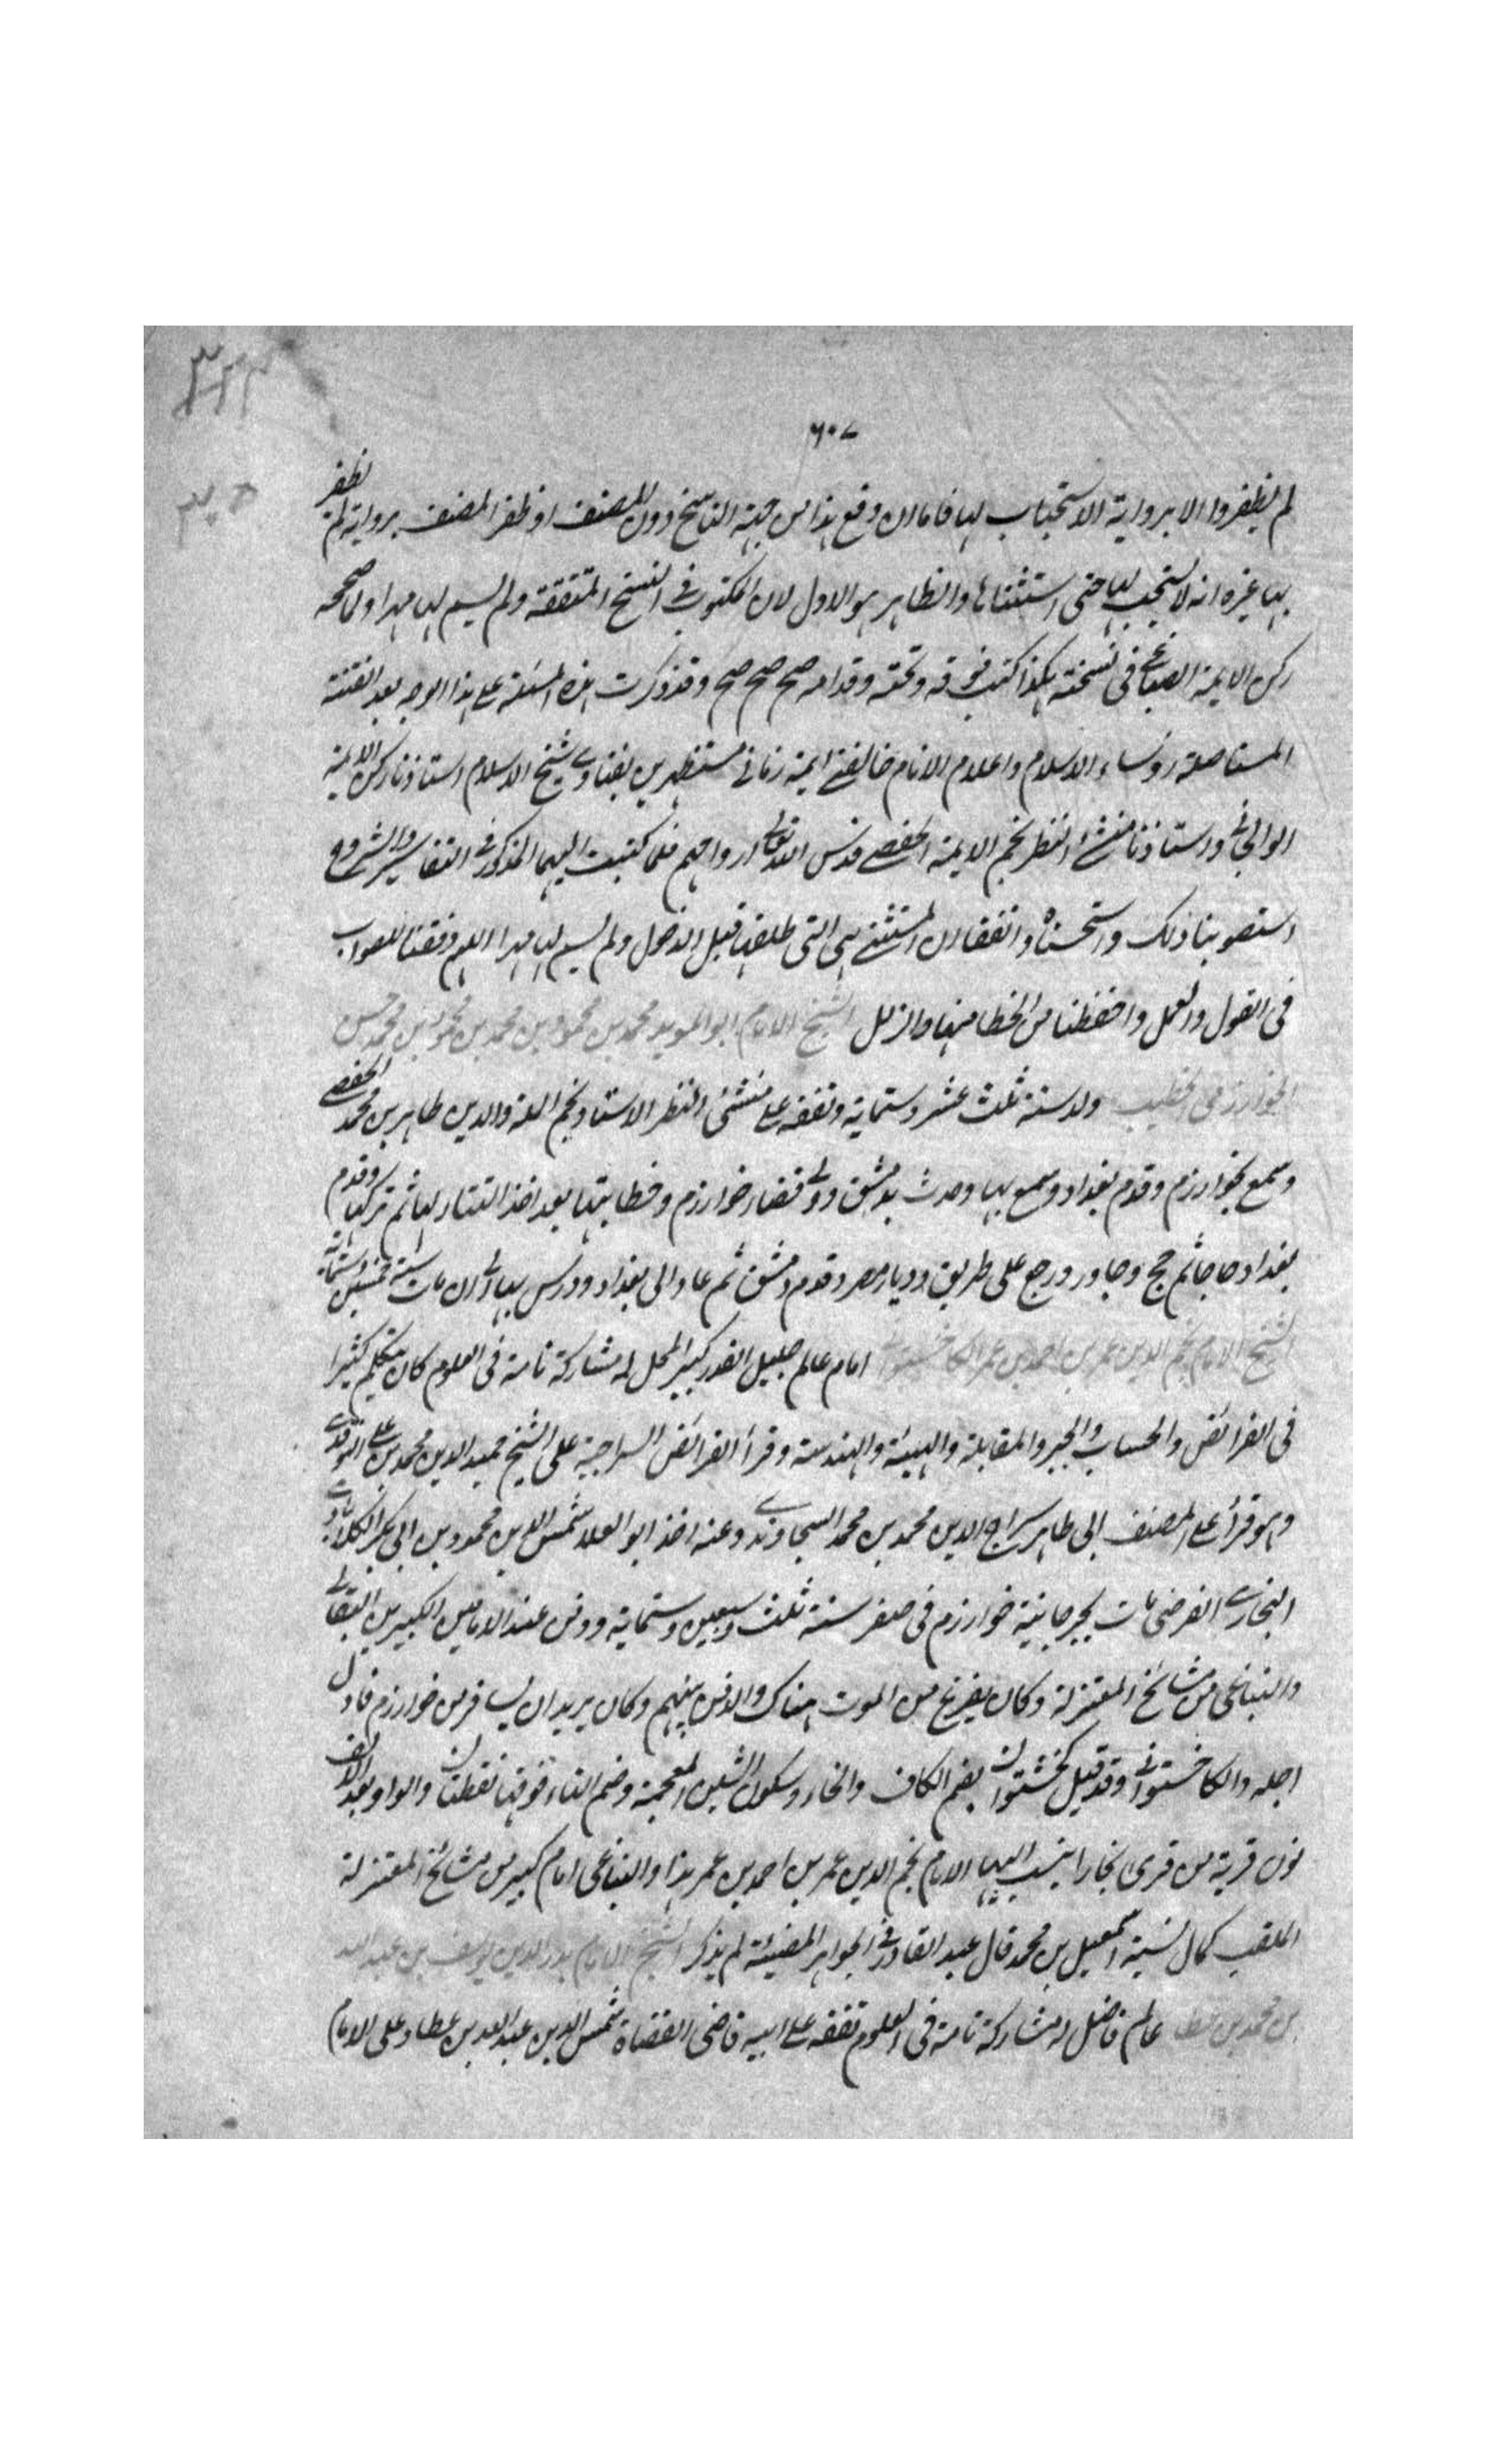 ٦٠٧
لم يظفروا الا برواية الاستحباب لها فاما ان وقع هذا من جهة الناسخ دون المصنف او ظفر المصنف برواية لم يظفر
بها غيره انه لا يستحب لها حتى استثناها والظاهر هو الاول لان المكتوب في النسخ المتفقة ولم يسم لها مهرا ولما صححه
ركن الايمة الصباغي في نسخته هكذا كتب فوقه وتحته وقدامه صح صح صح وقد ذكرت هذه المسئلة على هذا الوجه بعد الفتنة
المستاصلة روساء الاسلام واعلام الانام خالفني ايمة زماني مستظهرين بفتاوى شيخ الاسلام استاذنا ركن الايمة
الوالجاني واستاذنا منشئ النظر نجم الايمة الحفصي قدس الله تعالى ارواحهم فلما كتبت اليهما المذكور في التفاسير والشروح
استصوبنا ذلك واستحسناه واتفقا ان المستثنى هي التي طلقها قبل الدخول ولم يسم لها مهرا اللهم وفقنا للصواب
في القول والعمل واحفظنا من الخطا فيهما والزلل الشيخ الامام ابو المويد محمد بن محمود بن محمد بن محمود بن محمد بن حسن
الخوارزمي الخطيب ولد سنة ثلث عشر وستماية وتفقه على منشئ النظر الاستاد نجم الملة والدين طاهر بن محمد الحفصي
وسمع بخوارزم وقدم بغداد وسمع بها وحدث بدمشق وولي قضاء خوارزم وخطابتها بعد اخذ التتار لها ثم تركها وقدم
بغداد حاجا ثم حج وجاور ورجع على طريق وديار مصر وقدم دمشق ثم عاد الى بغداد ودرس بها الى ان مات سنة خمس وستماية
الشيخ الامام نجم الدين عمر بن احمد بن عمر الكاخشتواني امام عالم جليل القدر كبير المحل له مشاركة تامة في العلوم كان يتكلم كثيرا
في الفرائض والحساب والجبر والمقابلة والهيئة والهندسة وقرأ الفرائض السراجية على الشيخ حميد الدين محمد بن علي النوقدي
وهو قرأ على المصنف ابي طاهر سراج الدين محمد بن محمد السجاوندي وعنه اخذ ابو العلا شمس الدين محمود بن ابي بكر الكلاباذي
البخاري الفرضي مات بجرجانية خوارزم في صفر سنة ثلث وسبعين وستماية ودفن عند الامامين الكبيرين البقالي
والتباغي من مشائخ المعتزلة وكان يفزع من الموت هناك والدفن بينهم وكان يريد ان يسافر من خوارزم فادل
اجله والكاخشتواني وقد قيل كخشتوان بضم الكاف والخاء وسكون الشين المعجمة وضم التاء فوقها نقطتان والواو بعد الالف
نون قرية من قرى بخارا ينسب اليها الامام نجم الدين عمر بن احمد بن عمر هذا والتباغي امام كبير من مشائخ المعتزلة
الملقب كمال نسبة اسمعيل بن محمد قال عبد القادر في الجواهر المضيئة لم يذكر الشيخ الامام بدر الدين يوسف بن عبد الله
بن محمد بن عطا عالم فاضل له مشاركة تامة في العلوم تفقه على ابيه قاضي القضاة شمس الدين عبد الله بن عطا وعلى الامام